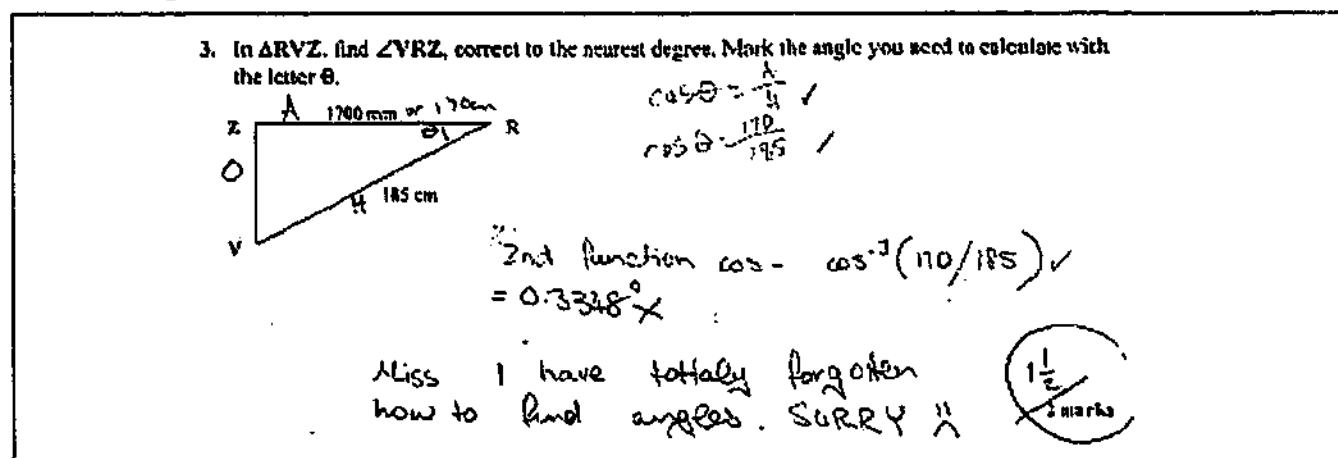 3. In ΔRVZ, find ∠VRZ, correct to the nearest degree. Mark the angle you need to calculate with
the letter θ.
cosθ = A/H ✓
A 1700 mm or 170cm
Z θ R
cosθ = 170/185 ✓
O
H 185 cm
V
2nd function cos - cos⁻¹(170/185) ✓
= 0.3348° ✗
Miss I have tottaly forgotten
how to find angles. SORRY
1 1/2
marks